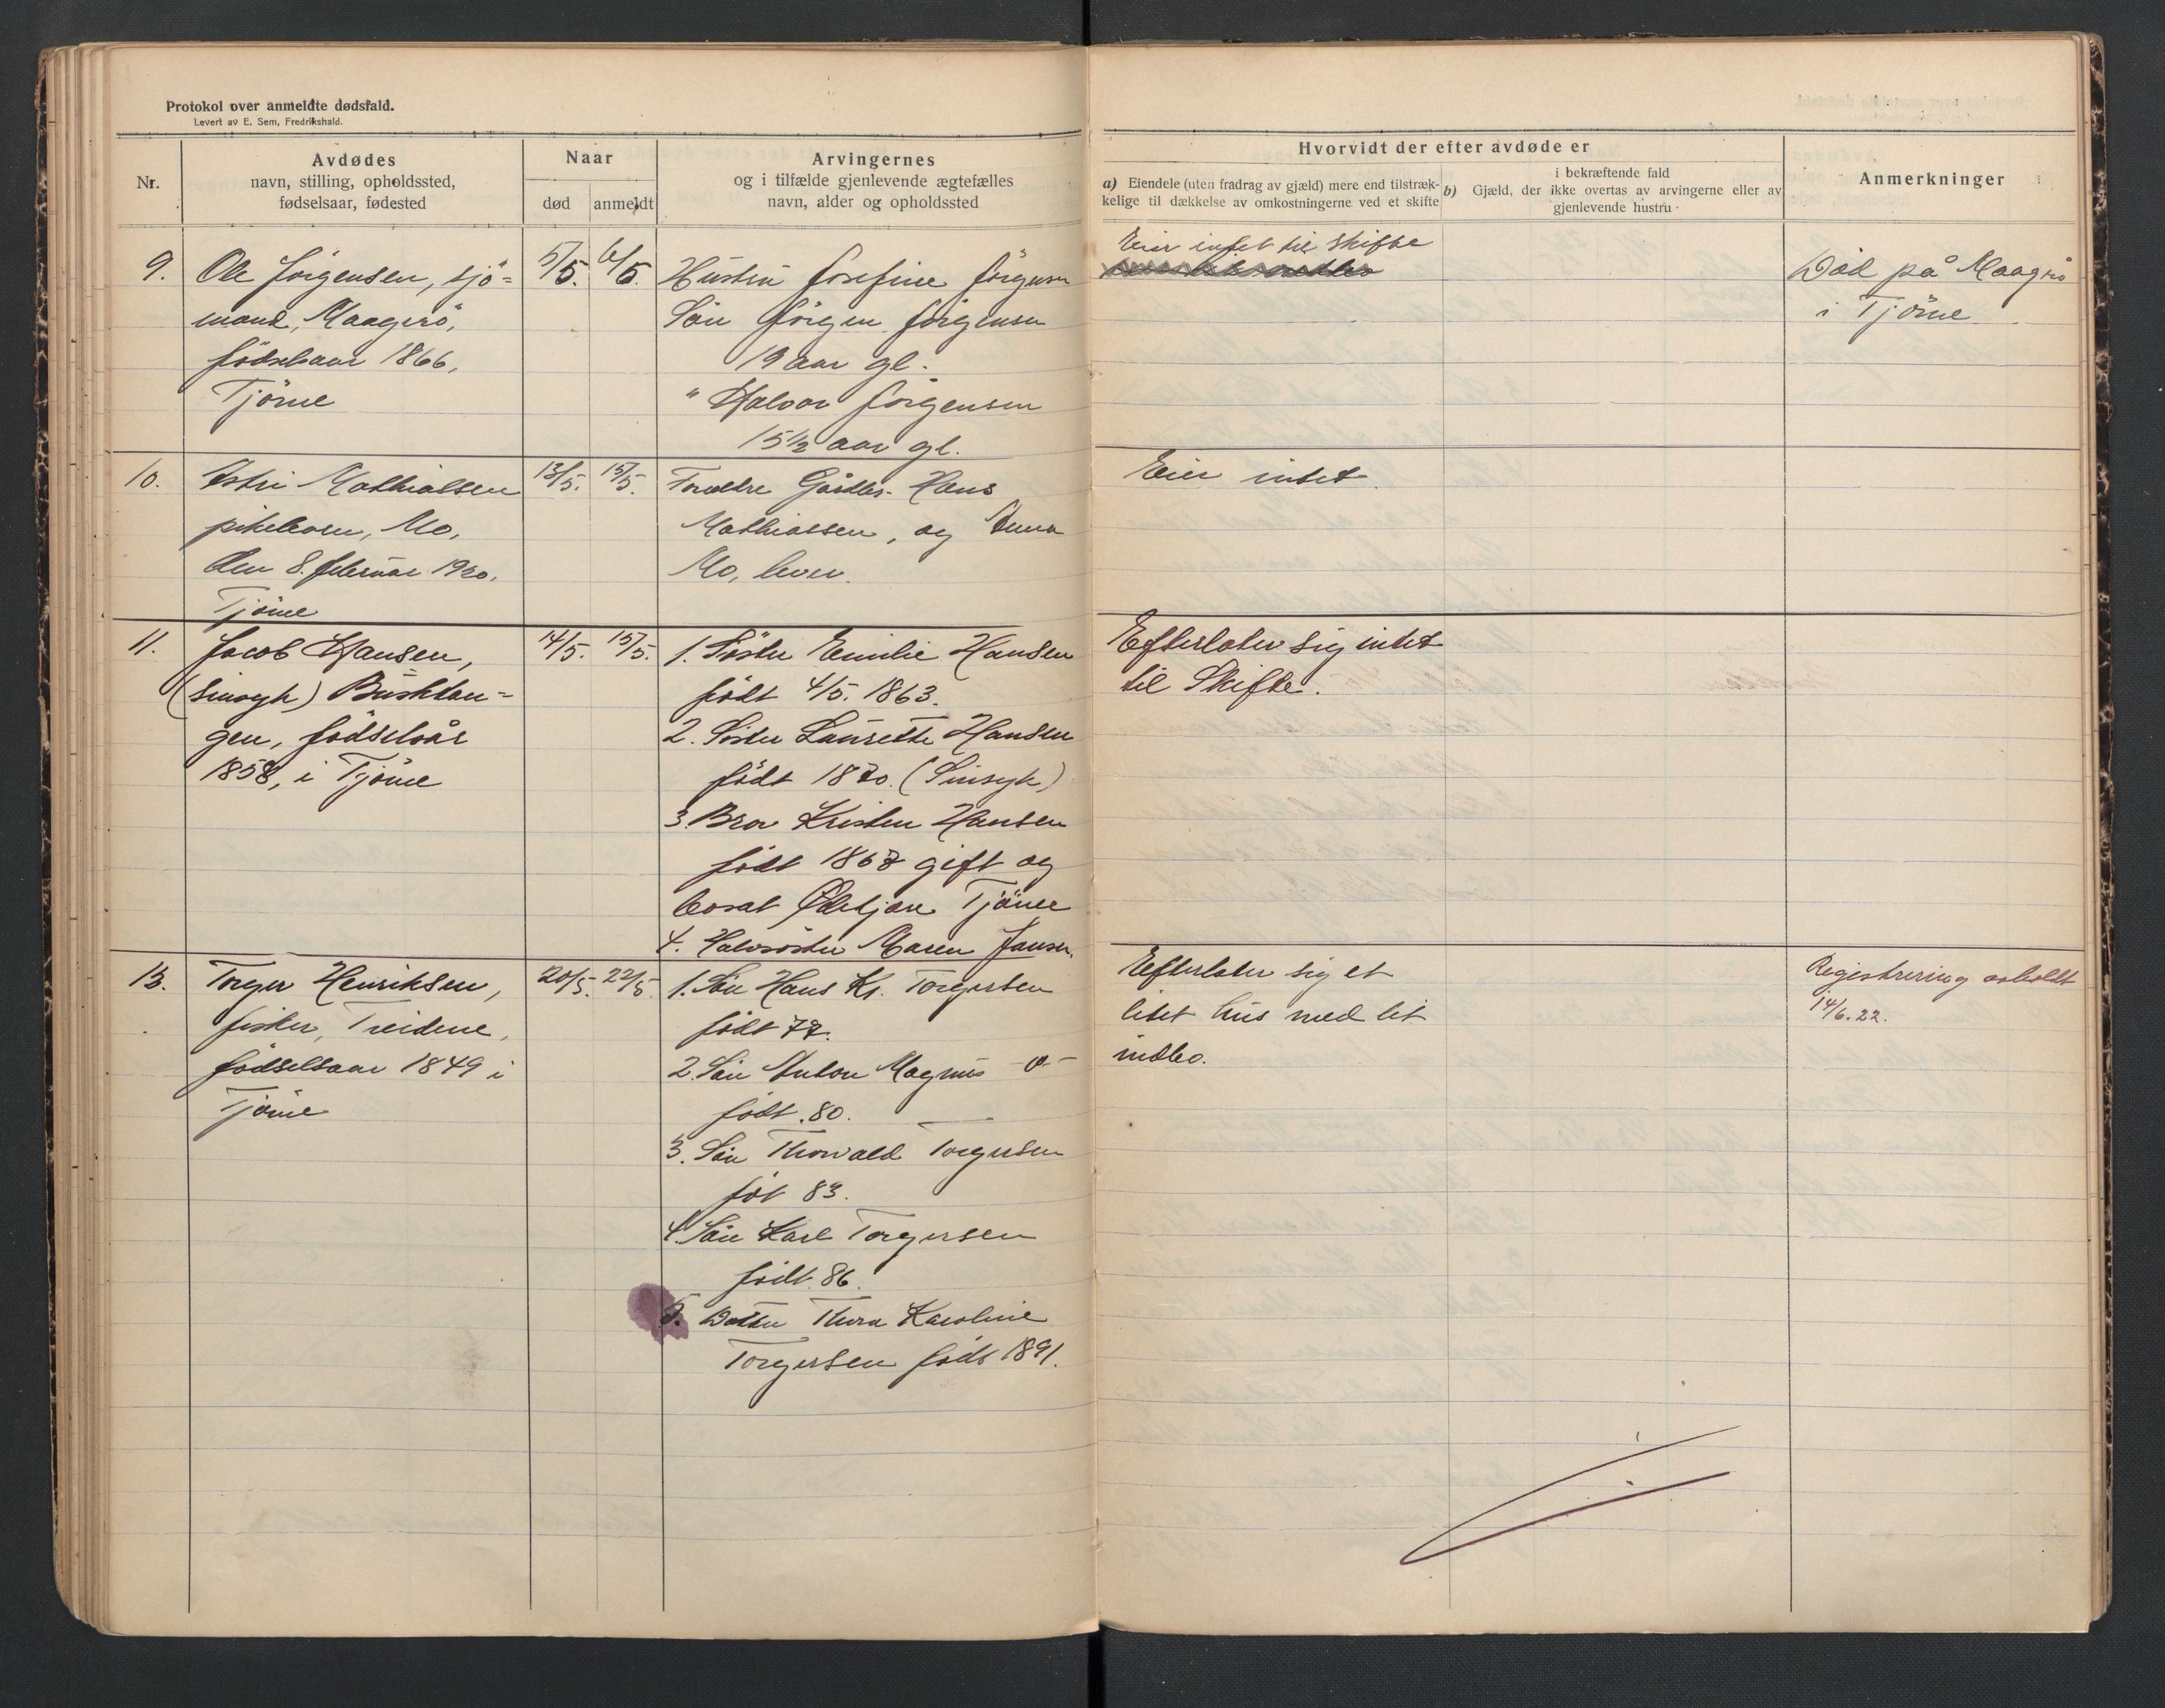 Protokol over anmeldte dødsfald.
Levert av E. Sem, Fredrikshald.
Nr.
Avdødes
navn, stilling, opholdssted,
fødselsaar, fødested
Naar
død
anmeldt
Arvingernes
og i tilfælde gjenlevende ægtefælles
navn, alder og opholdssted
Hvorvidt der efter avdøde er
a) Eiendele (uten fradrag av gjæld) mere end tilstræk-
kelige til dækkelse av omkostningerne ved et skifte
i bekræftende fald
b) Gjæld, der ikke overtas av arvingerne eller av
gjenlevende hustru
Anmerkninger
9.
Ole Jörgensen, sjö=
mand, Maagerö,
födselsaar 1866,
Tjöme
5/5. 6/5.
Hustru Josefine Jörgensen
Sön Jörgen Jörgensen
19 aar gl.
" Halvor Jörgensen
15 1/2 aar gl.
Eier intet til skifte
Död på Maagerö
i Tjöme
10.
Mathiassen
pikebarn, Mo,
den 8. februar 1920,
Tjöme
13/5. 15/5.
Forældre Gårdbr. Hans
Mathiassen, og Anna
Mo, lever.
Eier intet.
11.
Jacob Hansen,
(Sinsyk) Busktan=
gen, födselsår
1858, i Tjöme
14/5. 15/5.
1. Söster Emilie Hansen
födt 4/5. 1863.
2. Söster Laurette Hansen
födt 1870. (Sinsyk)
3. Bror Kristen Hansen
födt 1867 gift og
bosat Tjöme
4. Halvsöster Maren Jansen.
Efterlater sig intet
til Skifte.
13.
Torger Henriksen,
fisker, Treidene,
födselsaar 1849 i
Tjöme
20/5. 22/5.
1. Sön Hans Kr. Torgersen
födt 77.
2. Sön Anton Magnus -o-
födt. 80.
3. Sön Thorvald Torgersen
föt 83.
4. Sön Karl Torgersen
födt. 86.
5. Datter Thora Karoline
Torgersen födt 1891.
Eefterlater sig et
litet hus med lit
indbo.
Registrering avholdt
14/6. 22.